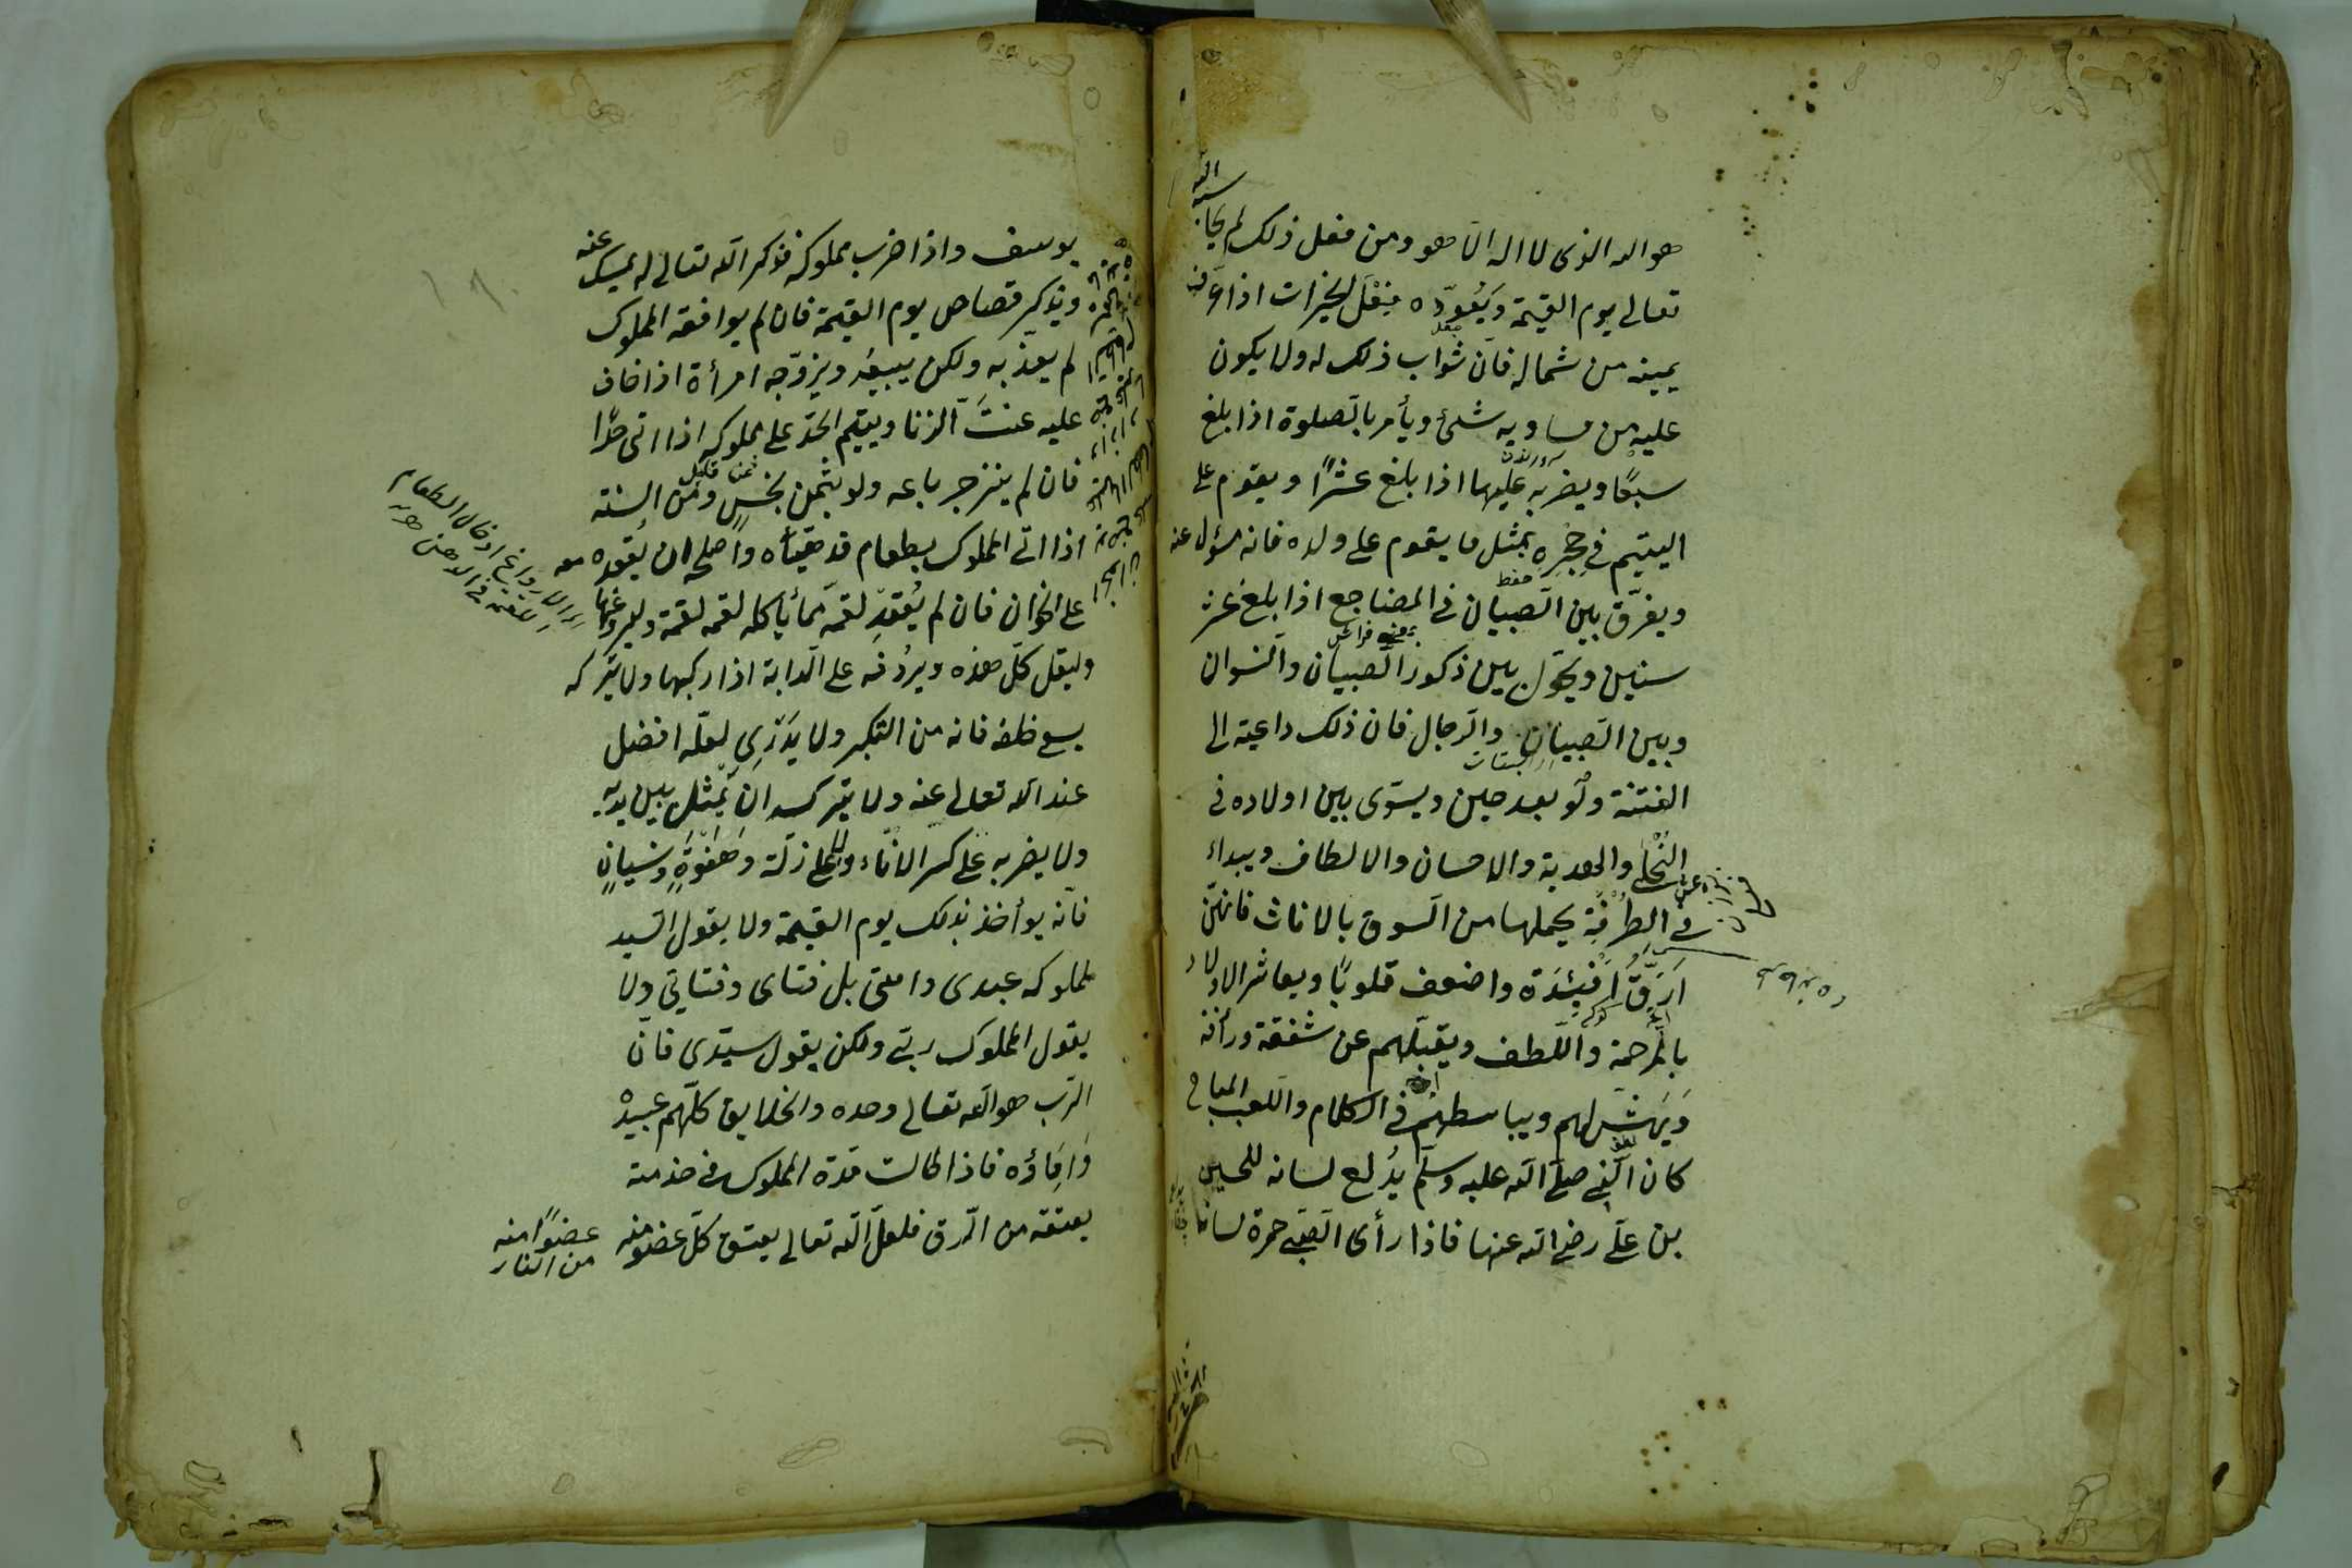 هو الله الذى لا اله الا هو ومن فعل ذلك لم يحاسبه الله
تعالى يوم القيمة ويعوّده فعل الخيرات اذا عرف
يمينه من شماله فان ثواب ذلك له ولا يكون
عليه من مساويه شئ ويأمر بالصلوة اذا بلغ
سبعًا ويضربه عليها اذا بلغ عشرًا ويقوم على
اليتيم فى حجره بمثل ما يقوم على ولده فانه مسؤل عنه
ويفرّق بين الصبيان فى المضاجع اذا بلغ عشر
سنين ويحول بين ذكور الصبيان والنسوان
وبين الصبيان والرجال فان ذلك داعية الى
الفتنة ولو بعد حين ويسوّى بين اولاده فى
النحل والهدية والاحسان والالطاف ويبداء
فى الطرفة يحملها من السوق بالاناث فانهنّ
ارقّ افئدة واضعف قلوبًا ويعاشر الاولاد
بالمرحمة واللطف ويقبّلهم عن شفقة ورأفة
ويهشّ لهم ويباسطهم فى الكلام واللعب المباح
كان النبى صلى الله عليه وسلم يدلع لسانه للحسين
بن علىّ رضى الله عنها فاذا رأى الصبى حمرة لسانه
يوسف واذا ضرب مملوكه فذكر الله تعالى له يمسك عنه
ويذكر قصاص يوم القيمة فان لم يوافقه المملوك
لم يعذبه ولكن يبيعه ويزوّجه امرأة اذا خاف
عليه عنت الزنا ويقيم الحدّ على مملوكه اذا اتى حدّا
فان لم ينزجر باعه ولو بثمن بخس ومن السنة
اذا اتى المملوك بطعام قد هيّأه واصلحه ان يقعده معه
على الخوان فان لم يقعد لقمه مما يأكله لقمة لقمة وليروغها
وليقل كل هذه ويردفه على الدابة اذا ركبها ولا يتركه
يسع خلفه فانه من التكبر ولا يزدرى لعلّه افضل
عند الله تعالى عنه ولا يتركه ان يمثل بين يديه
ولا يضربه على كسر الاناء ولا على زلّة وهفوةٍ ونسيانٍ
فانّه يؤاخذ بذلك يوم القيمة ولا يقول السيد
لمملوكه عبدى وامتى بل فتاى وفتاتى ولا
يقول المملوك ربّى ولكن يقول سيّدى فانّ
الرّب هو الله تعالى وحده والخلايق كلّهم عبيده
واماؤه فاذا طالت مدة المملوك فى خدمته
يعتقه من الرق فلعلّ الله تعالى يعتق كلّ عضو منه عضوًا منه
من النار
اللقمة فى الدهن